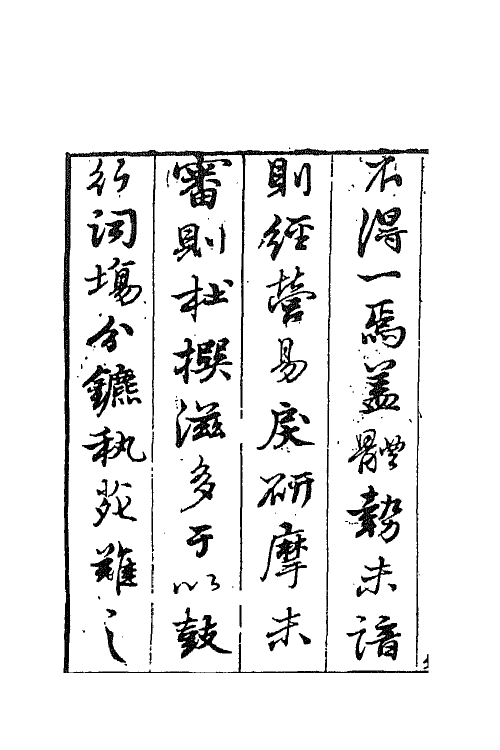 不得一焉盖體勢未諳
則經營易戾研摩未
審則杜撰滋多于以鼓
行詞場分鑣執苑難之